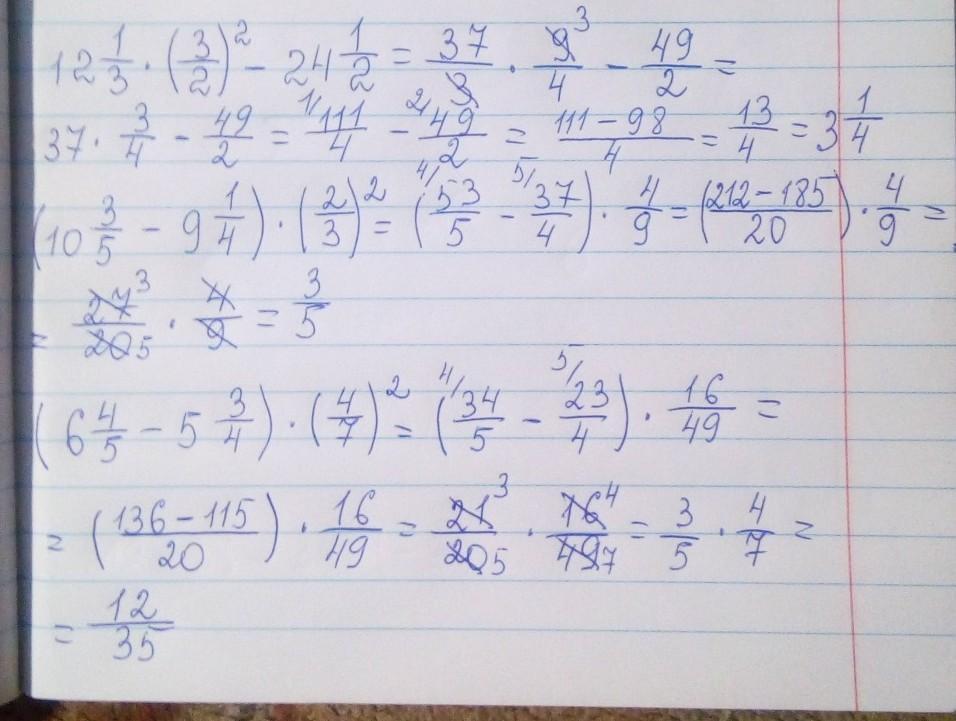 12 1/3 · (3/2)² − 24 1/2 = 37/3 · 9³/4 − 49/2 =
37 · 3/4 − 49/2 = ¹/111/4 − ²/49/2 = (111−98)/4 = 13/4 = 3 1/4
(10 3/5 − 9 1/4) · (2/3)² = (⁴/53/5 − ⁵/37/4) · 4/9 = ((212−185)/20) · 4/9 =
= 27³/20 5 · 4/9 = 3/5
(6 4/5 − 5 3/4) · (4/7)² = (⁴/34/5 − ⁵/23/4) · 16/49 =
= ((136−115)/20) · 16/49 = 21³/20 5 · 16⁴/49 7 = 3/5 · 4/7 =
= 12/35